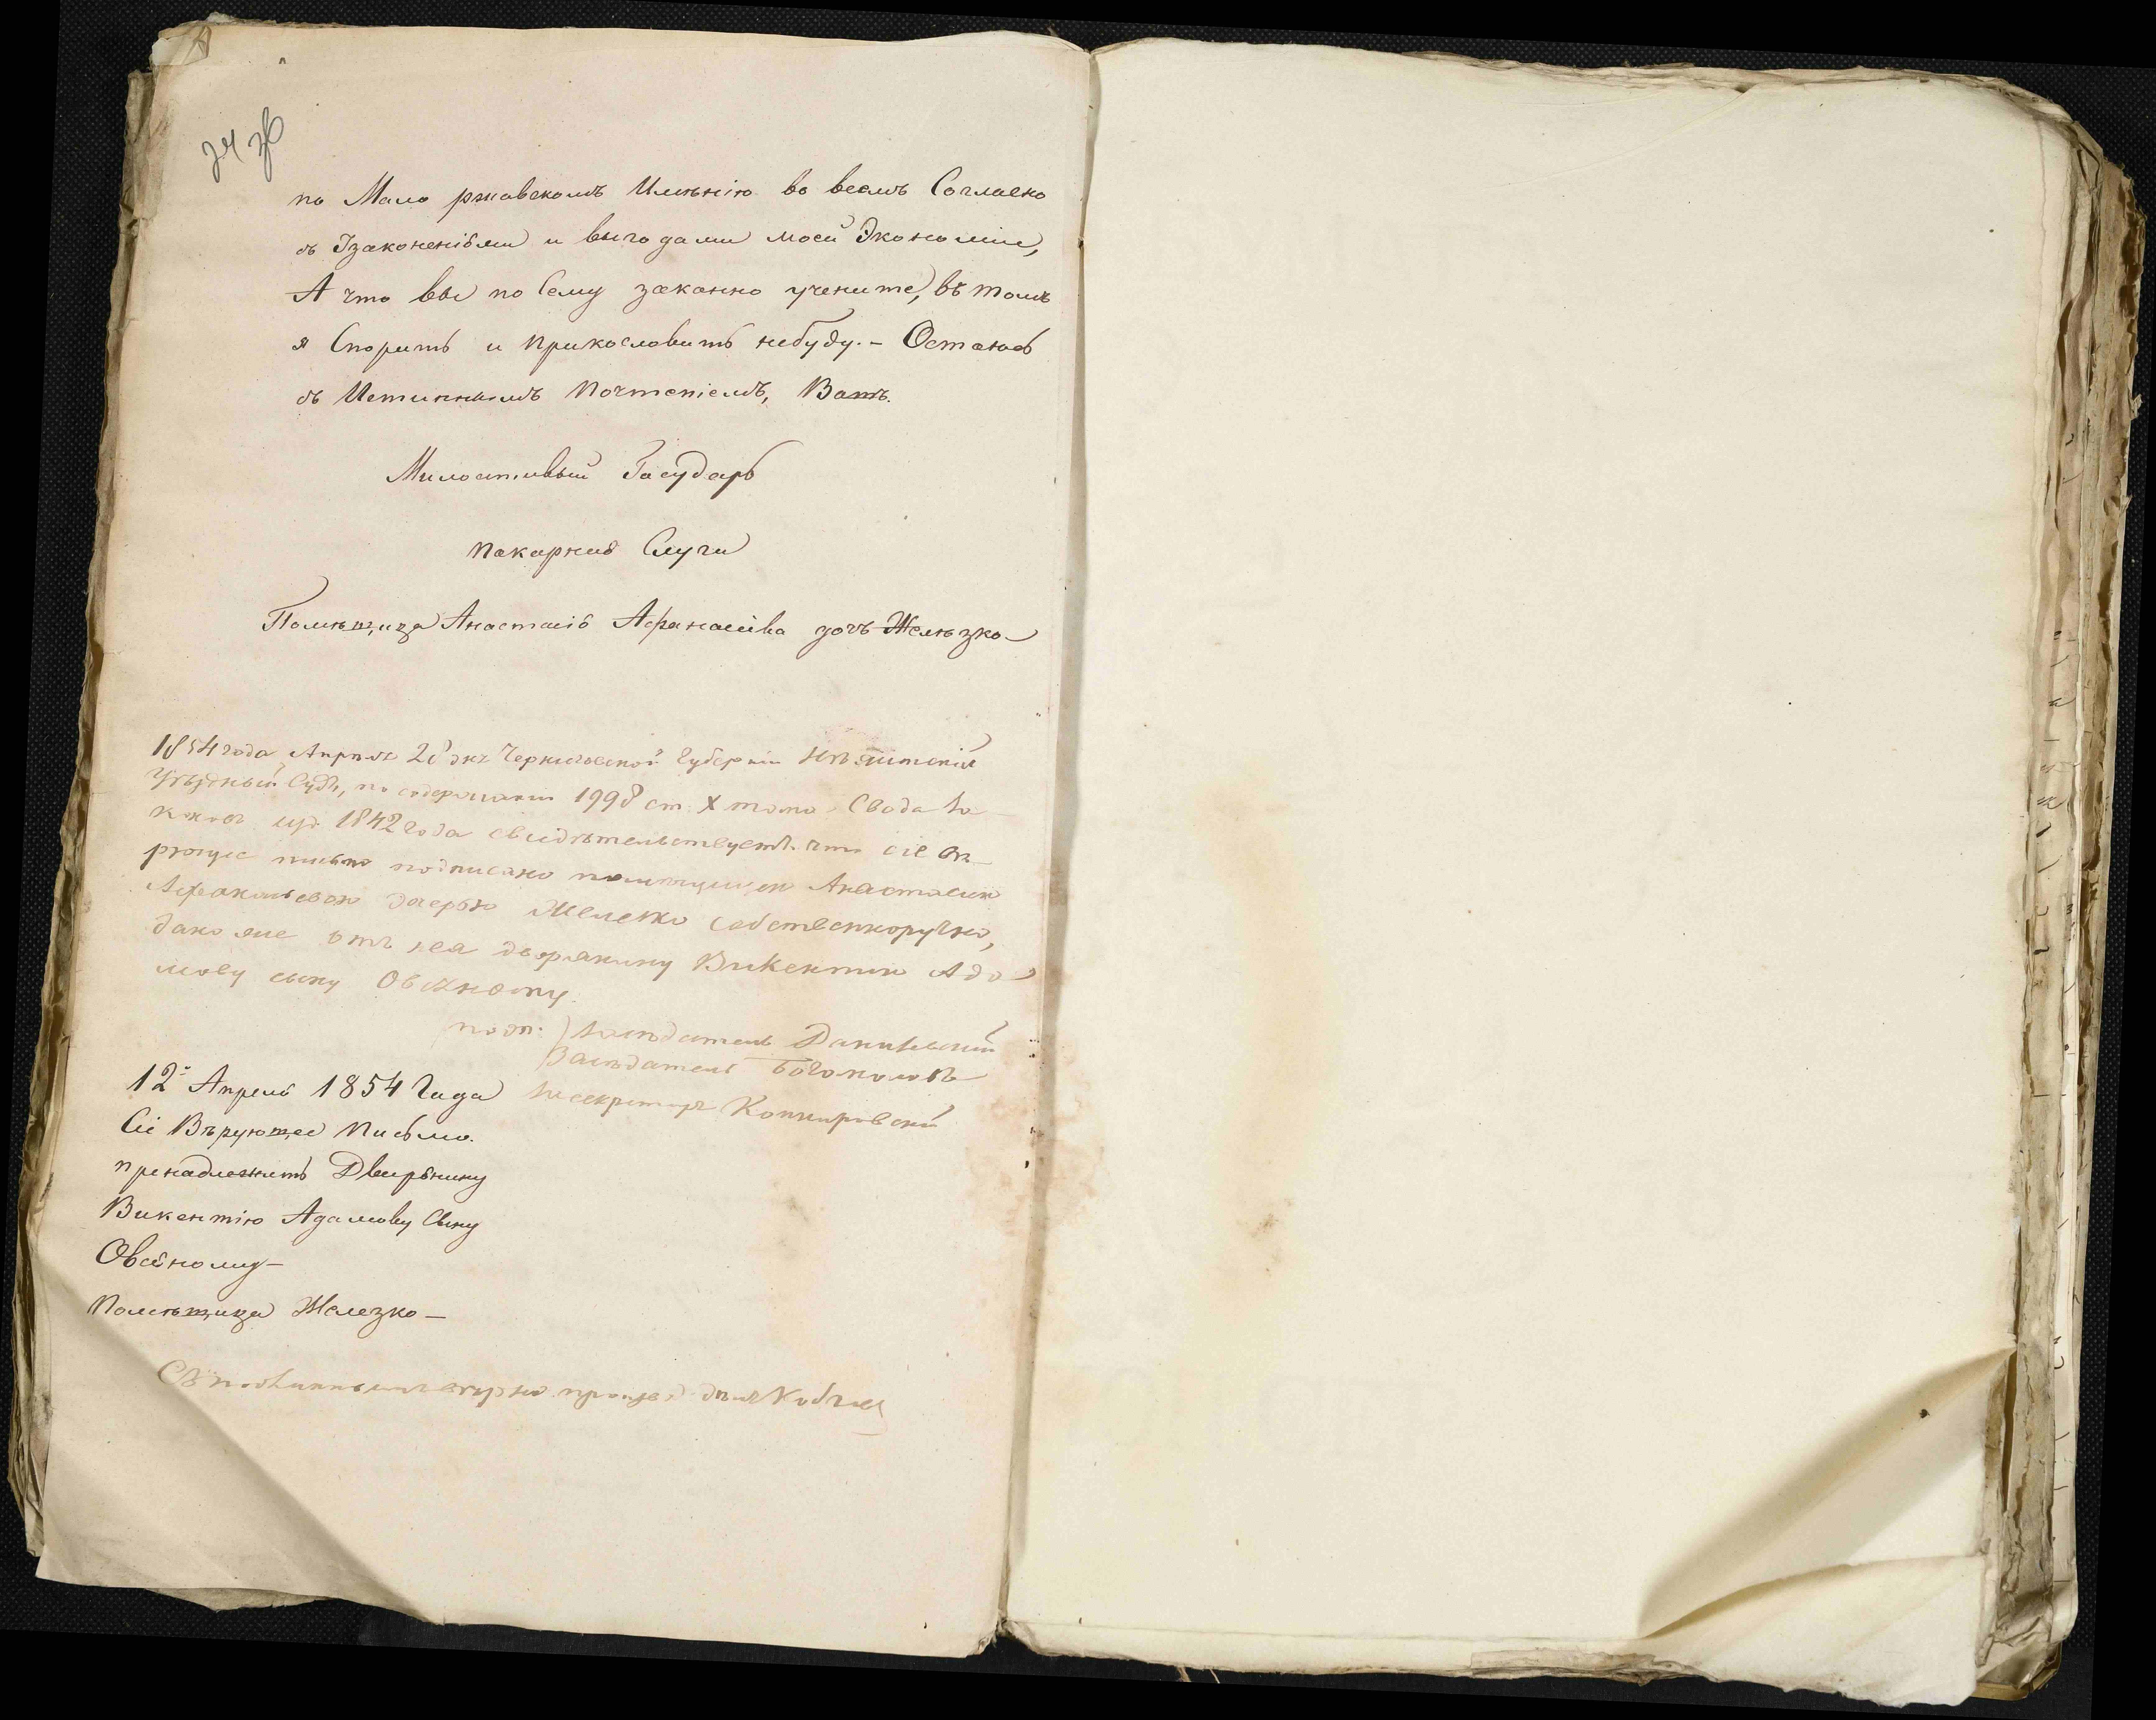 24 36
по Мало ржавскомъ Имѣнію во всемъ Согласно
съ Iзаконеніями и выгодами моей Экономіи,
А что вы по Сему законно учените, въ томъ
я Спорить и прикословить небуду. - Остаюсь
съ Истиннымъ Почтеніемъ, Вамъ.
Милостивый Государь
Покорная Слуга
Помѣщица Анастасія Афанасіева дочь Желѣзко
1854 года Апрѣля 20 дня Черниговской Губерніи
Уѣздный Судъ, по содержанію 1998 ст. X тома Свода За
коновъ изд. 1842 года свидѣтельствуетъ что сіе вѣ
рющее письмо подписано помѣщицею Анастасіею
Афанасьевою дочерью Железко собственноручно,
дано же отъ нея дворянину Викентію Ада
мову сыну Овсяному.
подп: Засѣдатель Данилевскій
Засѣдатель Богомоловъ
За секретаря
12го Апреля 1854 Года
Сіе Вѣрующее Письмо.
пренадлежитъ Дворянину
Викентію Адамову Сыну
Овсяному -
Помѣщица Железко -
Съ подлиннымъ вѣрно